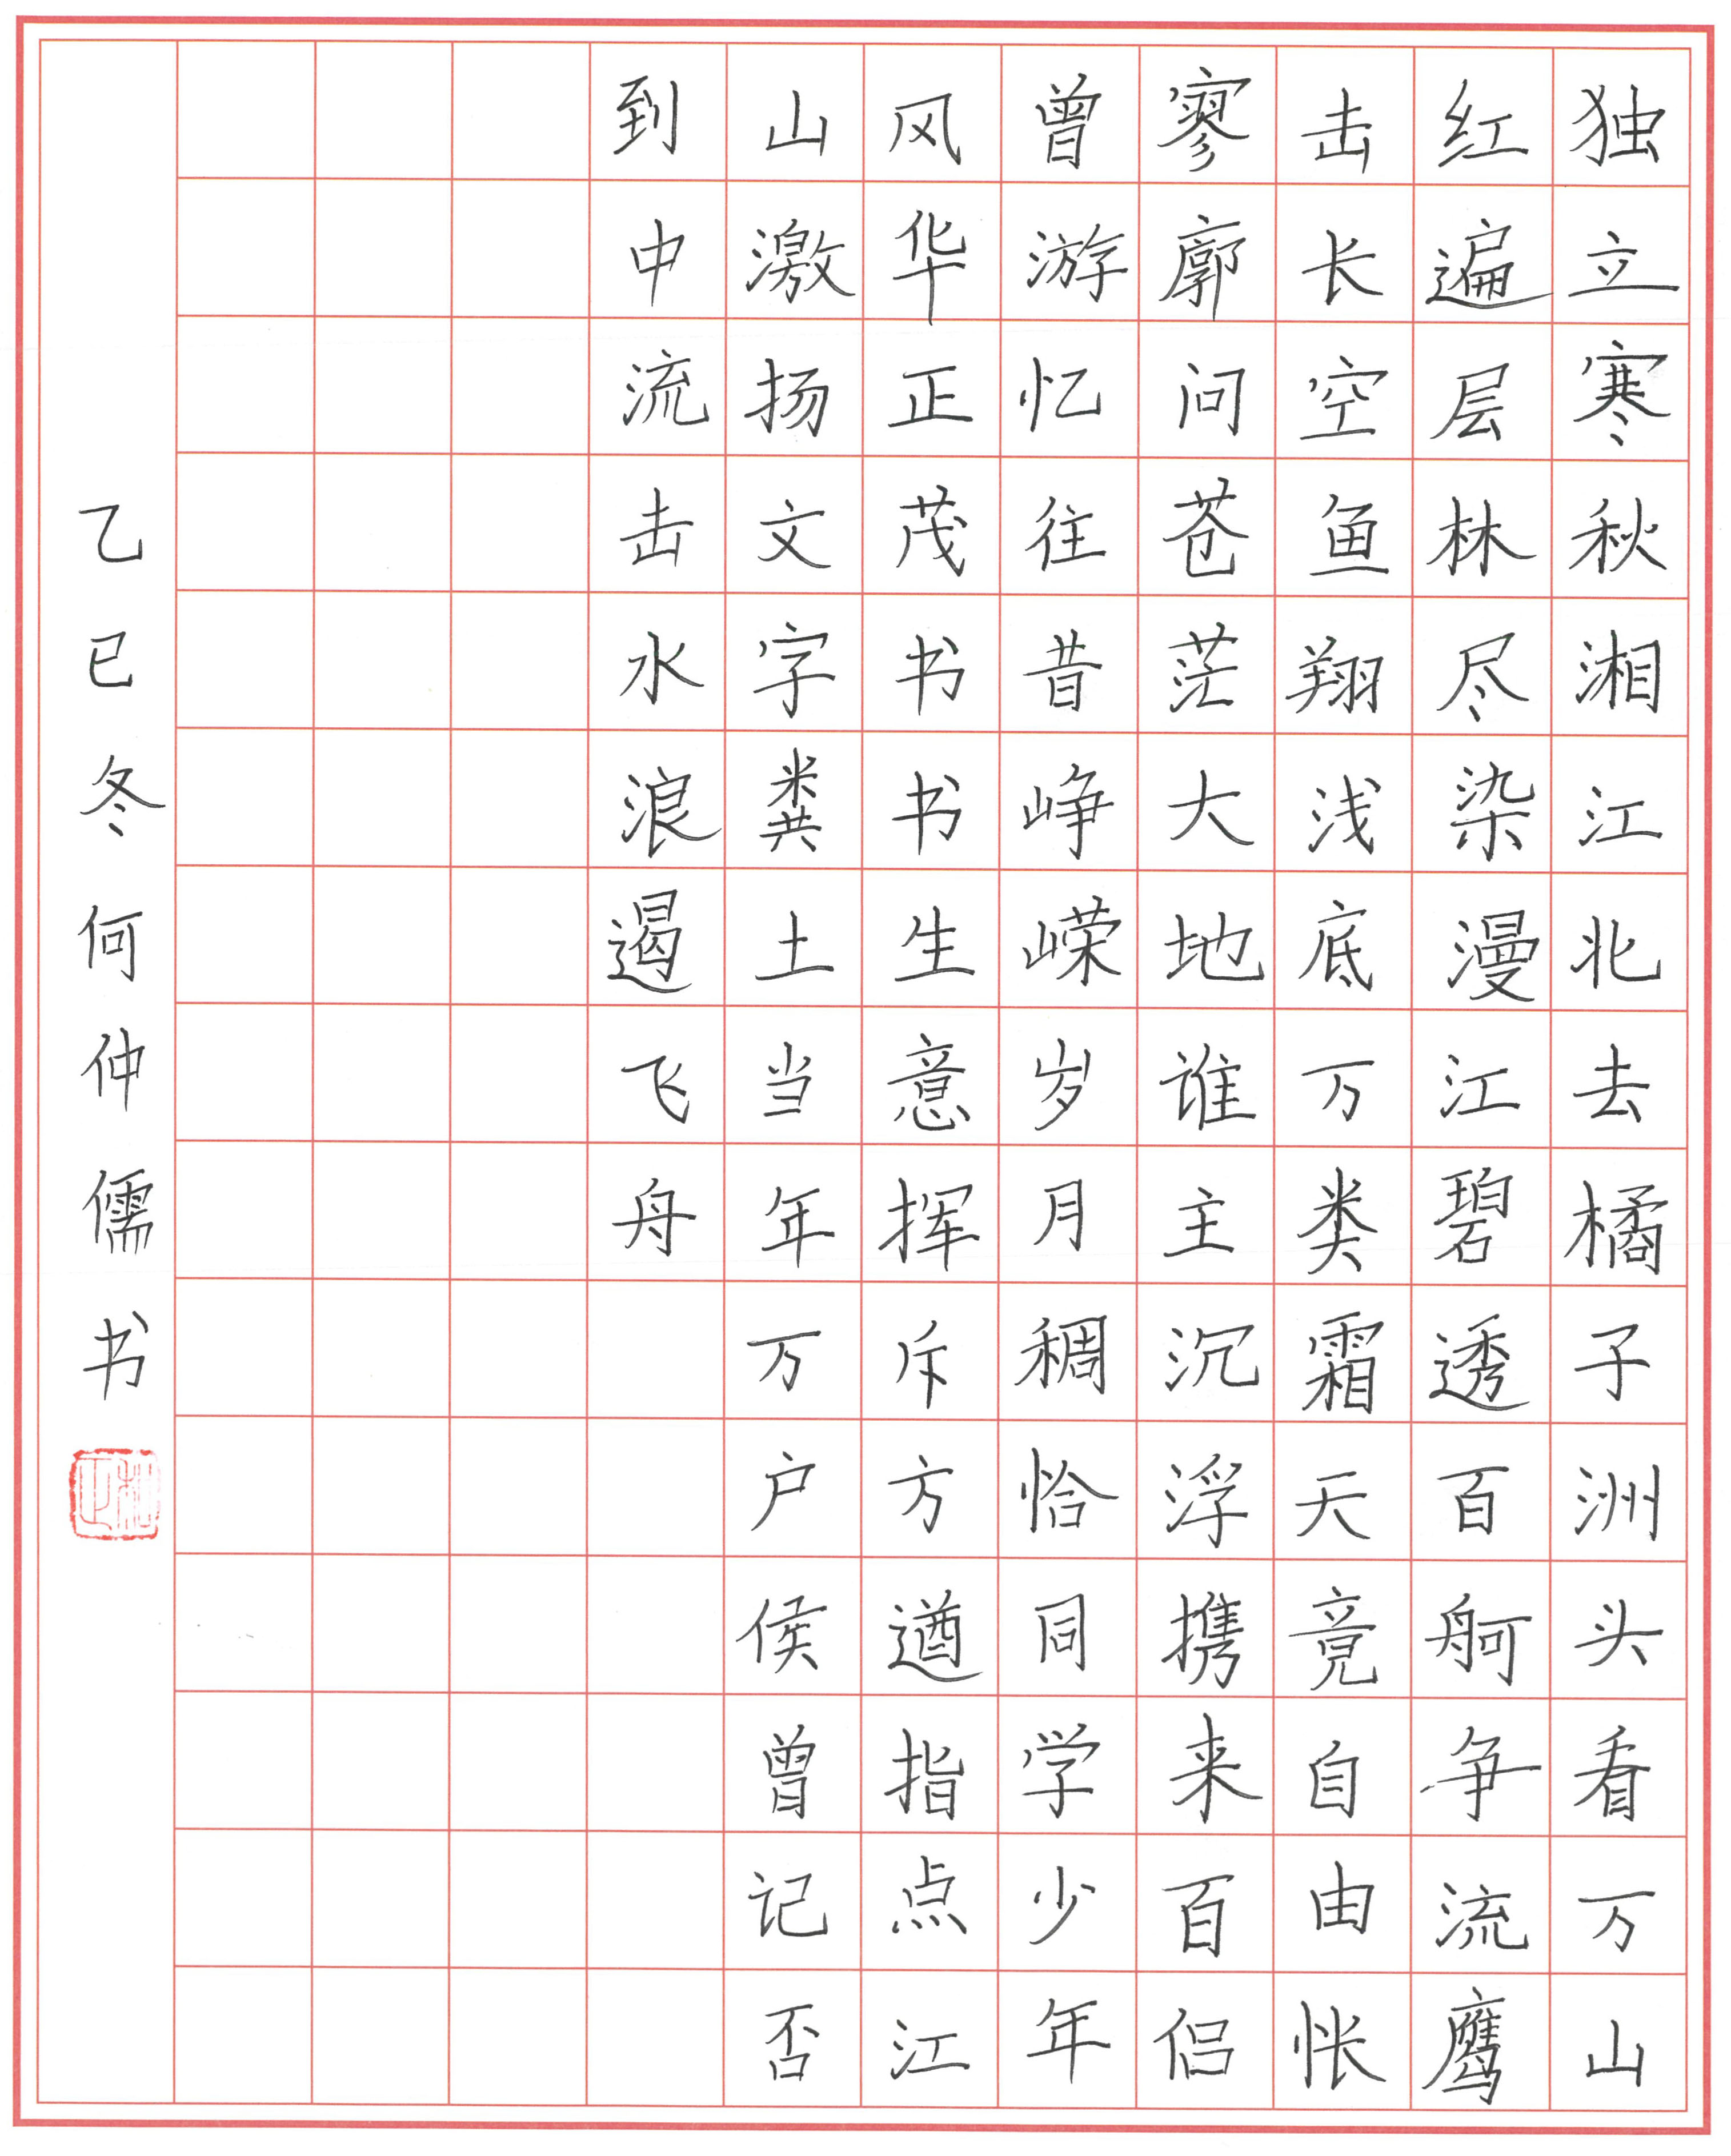 独立寒秋湘江北去橘子洲头看万山
红遍层林尽染漫江碧透百舸争流鹰
击长空鱼翔浅底万类霜天竟自由怅
寥廓问苍茫大地谁主沉浮携来百侣
曾游忆往昔峥嵘岁月稠恰同学少年
风华正茂书书生意挥斥方遒指点江
山激扬文字粪土当年万户侯曾记否
到中流击水浪遏飞舟
乙巳冬何仲儒书